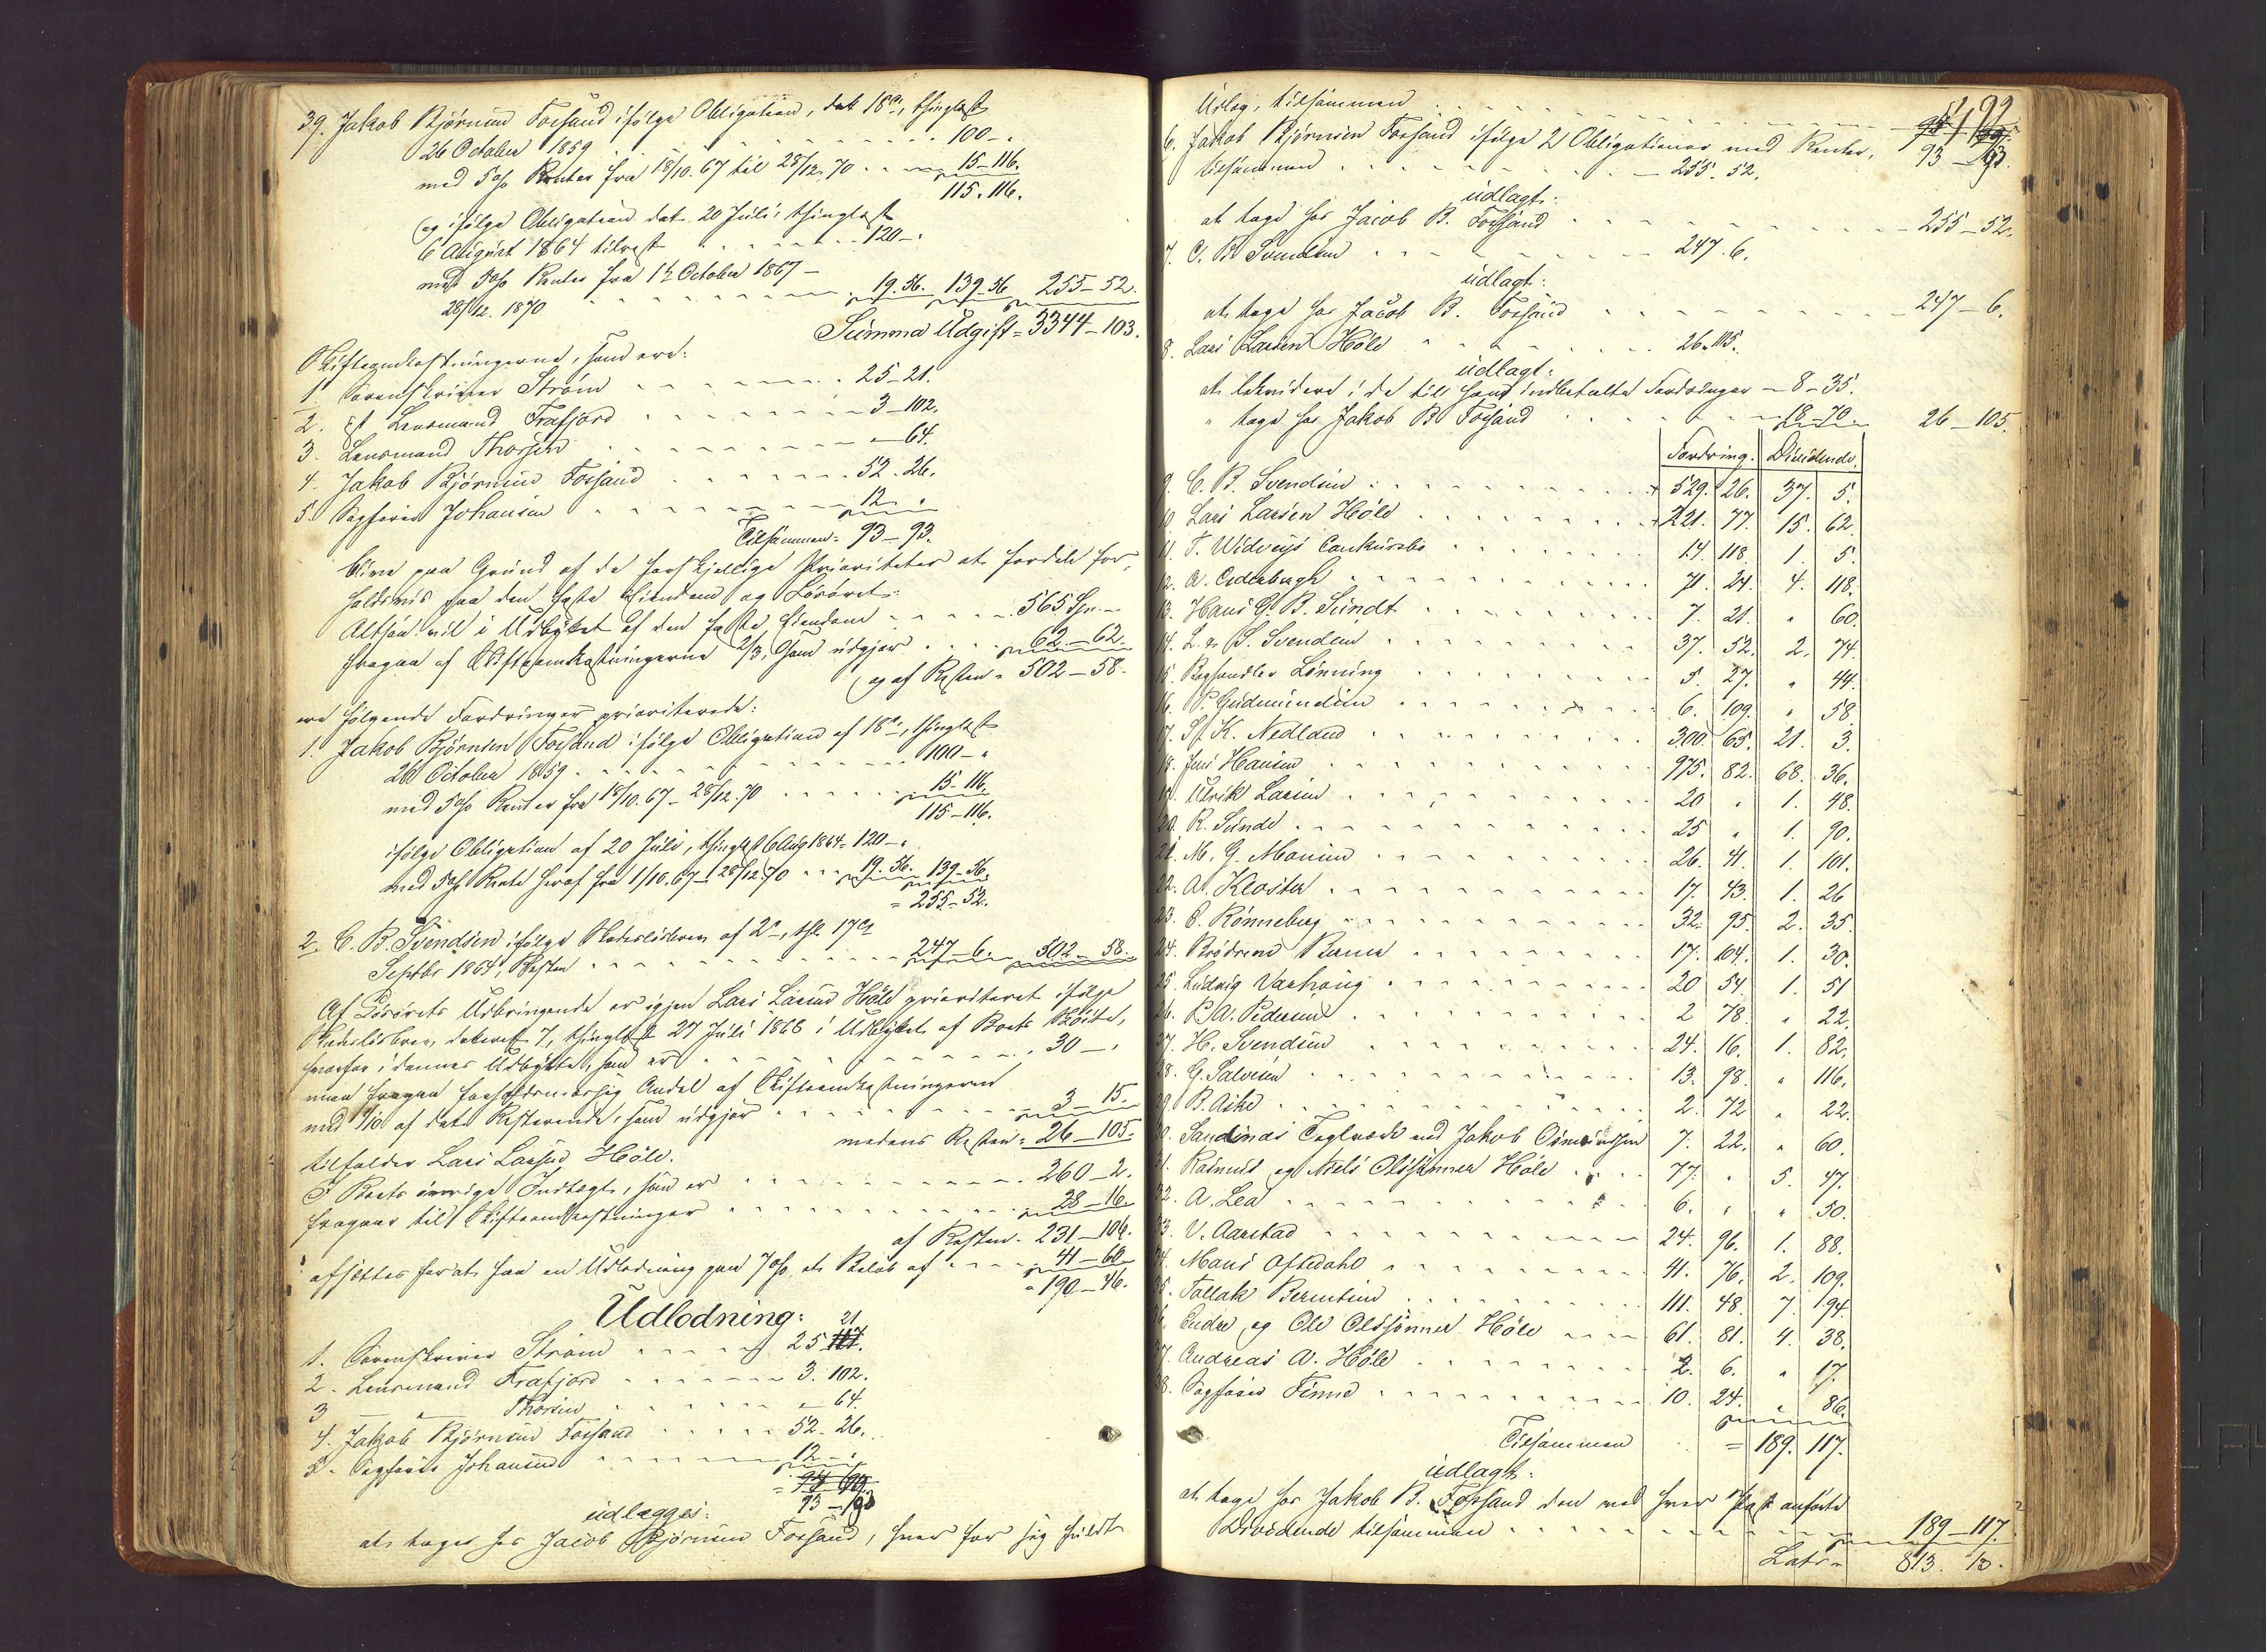 39. Jakob Bjørnsen Forsand ifølge Obligation, dat 18de, thinglæst
26 October 1859 100 - "
med 5 % Renter fra 18/10. 67 til 28/12. 70 15 - 116.
115. 116.
og ifølge Obligation dat. 20 Juli, thinglæst
6 August 1864 tilrest 120 - "
med 5 % Renter fra 1ste October 1867 -
28/12. 1870 19. 56. 139 - 56 255 - 52.
Summa Udgift = 3344 - 103.
Skifteomkostningerne, som ere:
1. Sorenskriver Strøm 25 - 21.
2. Lensmand Frafjord 3 - 102.
3. Lensmand Thorsen " - 64.
4. Jakob Bjørnsen Forsand 52 - 26.
5. Sagfører Johansen 12 - "
Tilsammen = 93 - 93.
blive paa Grund af de forskjellige Prioriteter at fordele for-
holdsvis paa den faste Eiendom og Løsøret:
Altsaa vil i Udbyttet af den faste Eiendom 565 Spd. -
fragaa af Skifteomkostningerne 2/3, som udgjør 62 - 62.
og af Resten = 502 - 58.
ere følgende Fordringer prioriterede:
1. Jakob Bjørnsen Forsand ifølge Obligation af 18de, thinglæst
26 October 1859 100 - "
med 5 % Renter fra 18/10. 67 - 28/12. 70 15 - 116.
115 - 116.
ifølge Obligation af 20 Juli, thinglæst 6 Aug 1864 = 120 - "
med 5 % Rente heraf fra 1/10. 67 - 28/12. 70 19. 56. 139 - 56.
= 255 - 52.
2. C. B. Svendsen ifølge Skadesløsbrev af 2den, thl. 17de
Septbr 1864, Resten 247 - 6. 502 - 58.
Af Løsørets Udbringende er igjen Lars Larsen Høle prioriteret ifølge
Skadesløsbrev, dateret 7, thinglæst 27 Juli 1868 i Udbyttet af Boets
hvorfor i dennes Udbytte, som er 30 - "
maa fragaa forholdsmæssig Andel af Skifteomkostningerne
med 1/10 af det Resterende, som udgjør 3 - 15.
medens Resten = 26 - 105.
tilfalder Lars Larsen Høle.
I Boets øvrige Indtægt, som er 260 - 2.
fragaar til Skifteomkostninger 28 - 16.
af Resten = 231 - 106.
afsættes for at faa en Udlodning paa 7 % et Beløb af 41 - 60.
= 190 - 46.
Udlodning:
1. Sorenskriver Strøm 25 21
2. Lensmand Frafjord 3. 102.
3 - " - Thorsen " 64.
4. Jakob Bjørnsen Forsand 52 - 26.
5. Sagfører Johansen 12 - "
93 - 93
udlægges:
at tages hos Jacob Bjørnsen Forsand, hver for sig fuldt
Udlæg, tilsammen 93 - 93.
6. Jakob Bjørnsen Forsand ifølge 2 Obligationer med Renter,
tilsammen 255. 52.
udlagt:
at tage hos Jacob B. Forsand 255 - 52.
7. C. B. Svendsen 247. 6.
udlagt:
at tage hos Jacob B. Forsand 247 - 6.
8. Lars Larsen Høle 26. 105.
udlagt:
at likvidere i de til ham indbetalte Fordringer - 8 - 35.
" tage hos Jakob B. Forsand 18 - 70. 26 - 105.
Fordring. Dividende.
9. C. B. Svendsen 529. 26. 37. 5.
10 Lars Larsen Høle 221. 77. 15. 62
11. T. Widveys Conkursbo 14. 118 1. 5.
12. A. Cederbergh 71. 24. 4. 118.
13. Hans G. B. Sundt 7. 21. " 60.
14. L. & S. Svendsen 37. 52. 2. 74.
15. Boghandler Lønning 5. 27. " 44.
16. P. Gudmundsen 6. 109. " 58
17. S. K. Nedland 300. 65. 21. 3.
18. Jens Hansen 975. 82. 68. 36.
19. Ulrik Larsen 20 " 1. 48.
20. R. Sunde 25 " 1. 90.
21. M. G. Monsen 26. 41. 1. 101.
22. A. Kloster 17. 43. 1. 26
23. C. Rønneberg 32. 95. 2. 35
24. Brødrene Berner 17. 104. 1. 30.
25. Ludvig Varhaug 20 54 1. 51
26. P. A. Pedersen 2 78 " 22.
27. H. Svendsen 24. 16. 1. 82.
28. G. Salvesen 13. 98. " 116.
29. B. Aske 2. 72 " 22.
30. Sandnæs Teglværk ved Jakob Osmundsen 7. 22. " 60.
31. Rasmus og Niels Olssønner Høle 77. " 5. 47.
32. A. Lea 6. " " 50.
33. V. Aarstad 24. 96. 1. 88.
34. Mons Oftedahl 41. 76. 2. 109.
35. Tollak Berntsen 111. 48. 7. 94.
36. Endre og Ole Olssønner Høle 61. 81. 4. 38.
37. Andreas A. Høle 2. 6. " 17.
38. Sagfører Finne 10. 24. " 86.
Tilsammen = 189. 117.
udlagt:
at tage hos Jakob B. Forsand den ved hver Post anførte
Dividende tilsammen 189 - 117.
Lats = 813. 13.